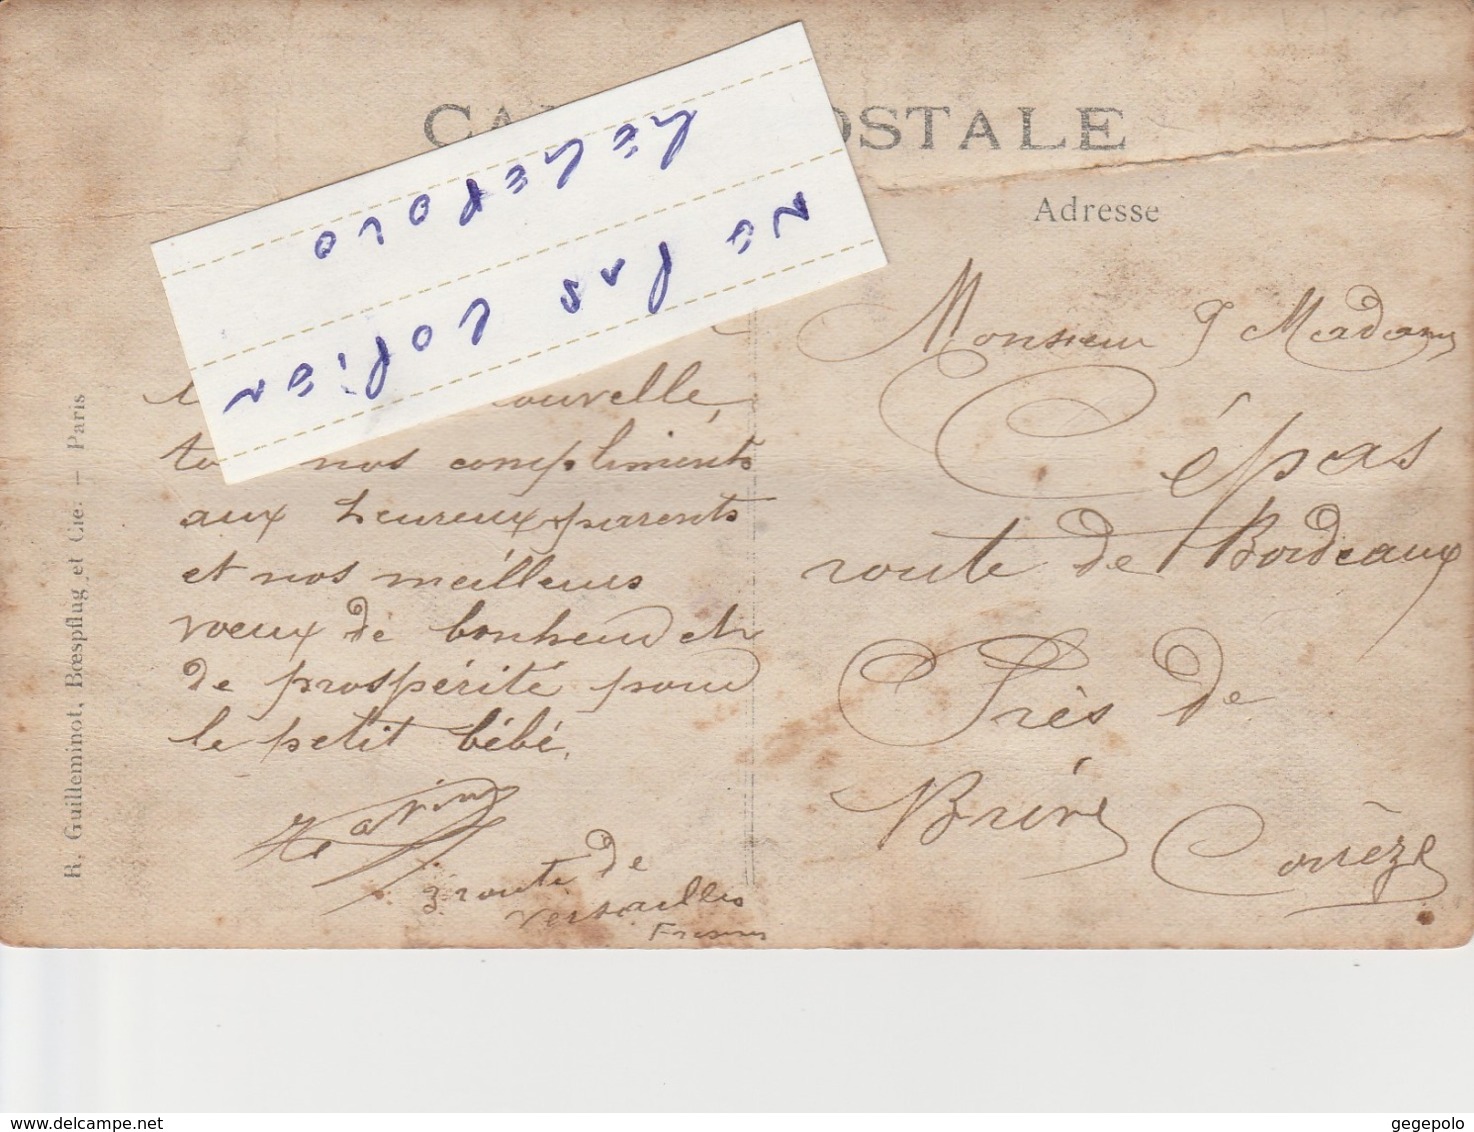 CA OSTALE
Adresse
GEGEPOLO
NE PAS COPIER
ouvelle,
nos compliments
aux heureux parents
et nos meilleurs
vœux de bonheur et
de prospérité pour
le petit bébé.
3 route de
Versailles
Fresnes
Monsieur & Madame
Cépas
route de Bordeaux
Près de
Brive
Corrèze
R. Guilleminot, Bœspflug et Cie. — Paris
delcampe.net
gegepolo